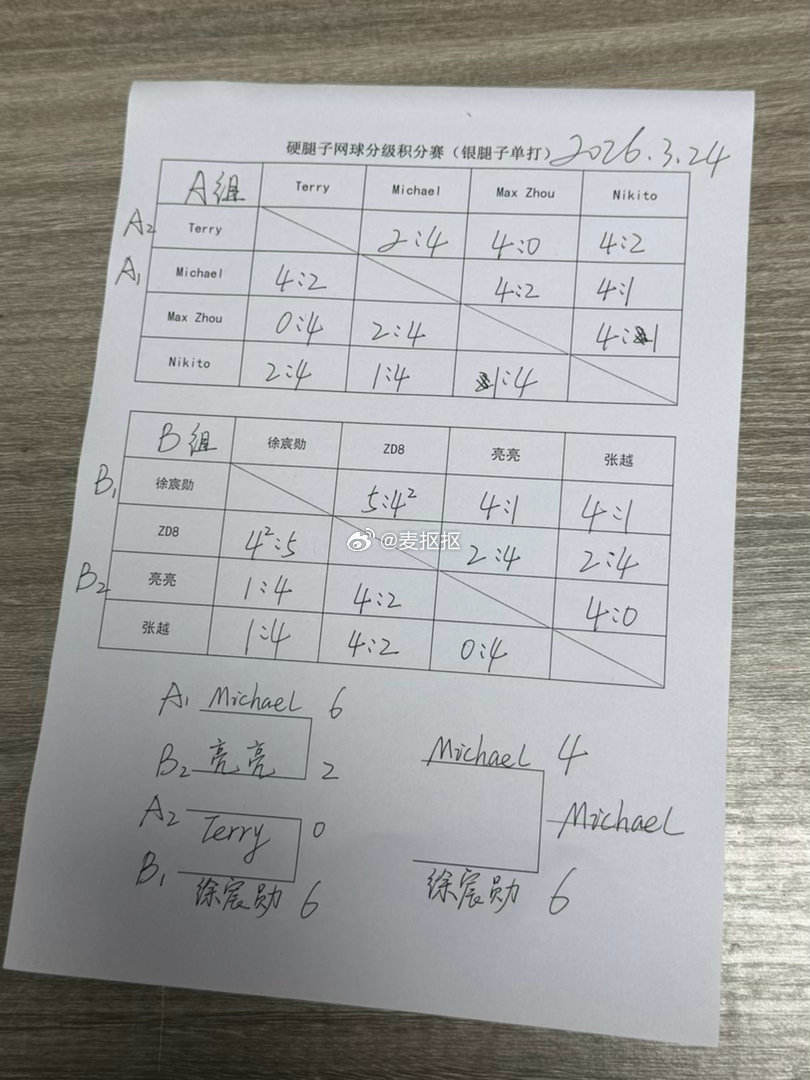 硬腿子网球分级积分赛（银腿子单打） 2026.3.24
A组 Terry Michael Max Zhou Nikito
A2 Terry 2:4 4:0 4:2
A1 Michael 4:2 4:2 4:1
Max Zhou 0:4 2:4 4:1
Nikito 2:4 1:4 1:4
B组 徐宸勋 ZD8 亮亮 张越
B1 徐宸勋 5:4² 4:1 4:1
ZD8 4²:5 2:4 2:4
B2 亮亮 1:4 4:2 4:0
张越 1:4 4:2 0:4
@麦抠抠
A1 Michael 6
B2 亮亮 2
A2 Terry 0
B1 徐宸勋 6
Michael 4
Michael
徐宸勋 6